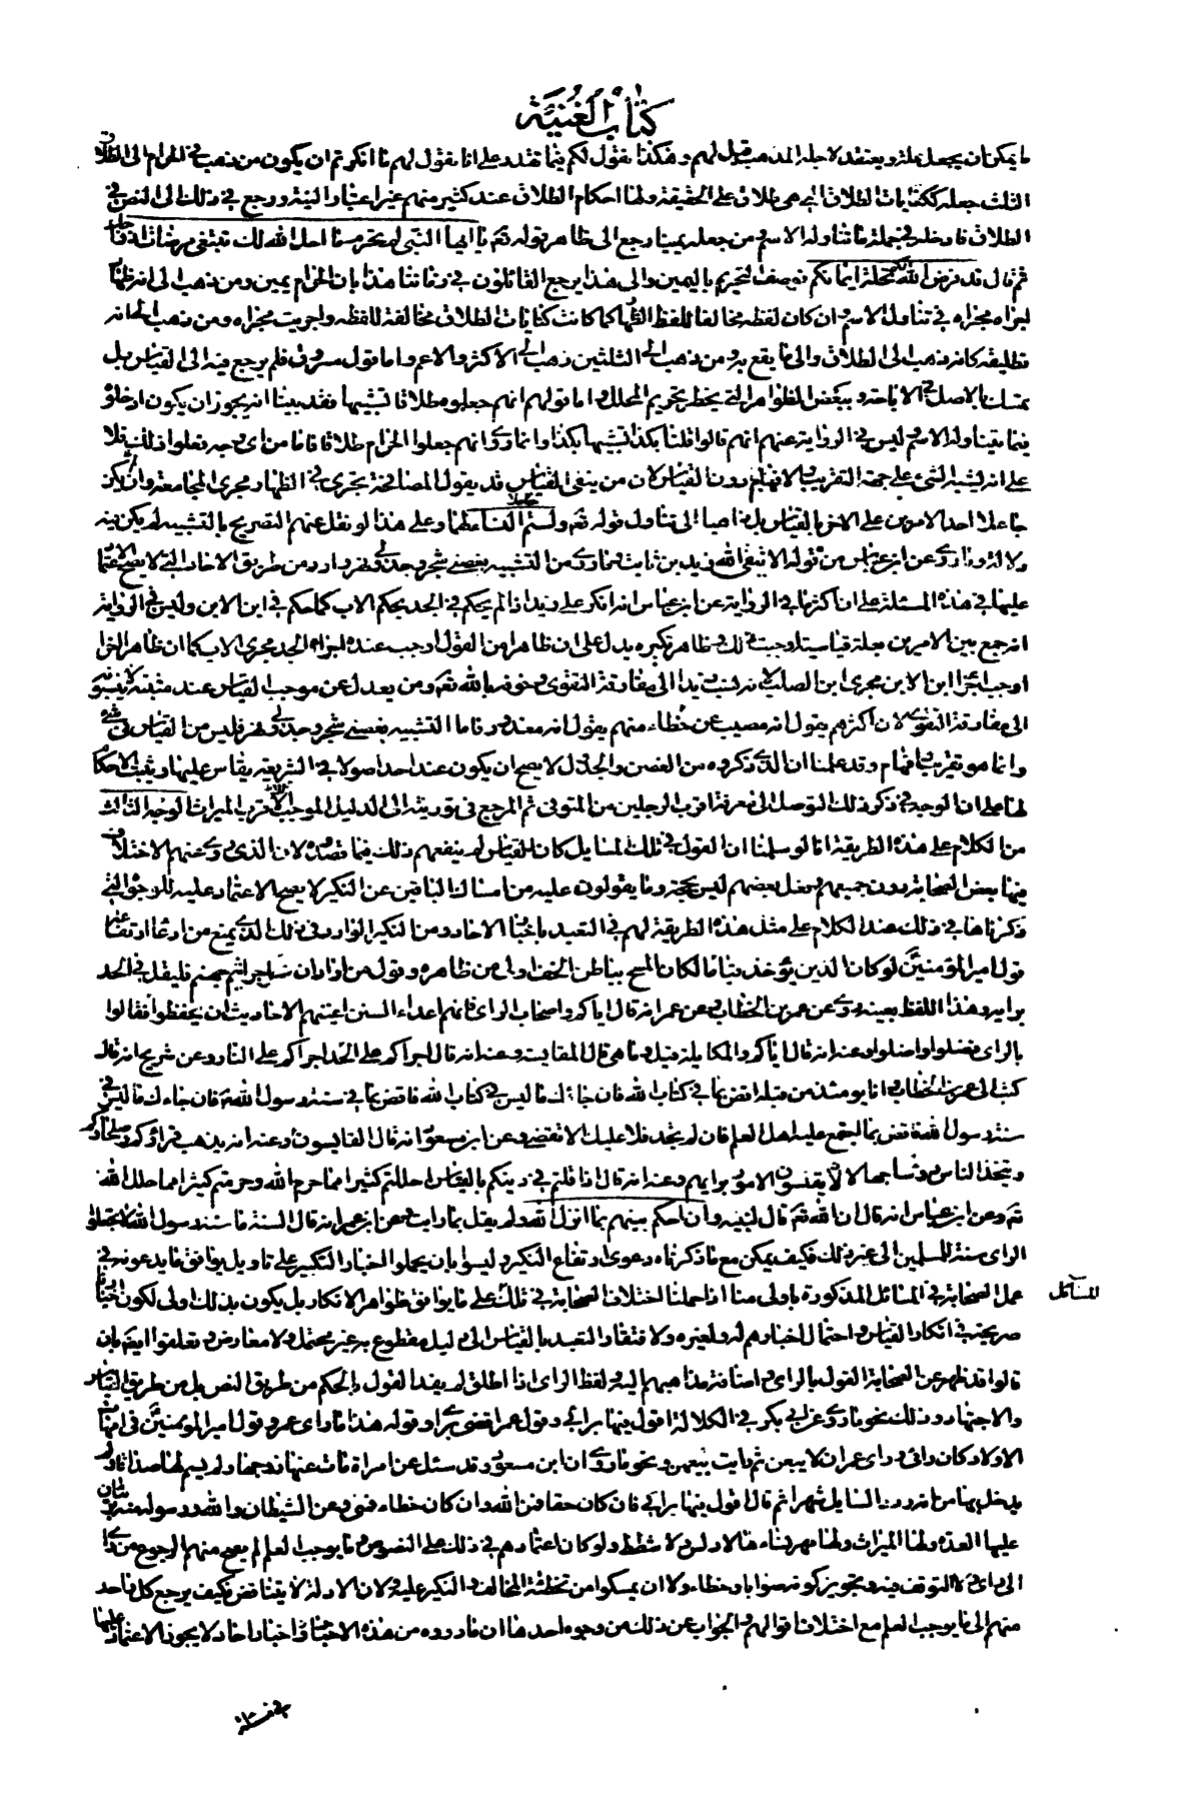 كتاب الغنية
ما يمكن ان يجعل علة ويعتقد لاجله المذهب قيل لهم وهكذا نقول لكم فيما تقدم على انا نقول لهم ما انكرتم ان يكون من ذهب في الحرام الى الطلاق
الثلث جعله ككنايات الطلاق التي هي طلاق على الحقيقة ولها احكام الطلاق عند كثير منهم غير اعتبار النية ورجع في ذلك الى النص في
الطلاق فادخله في جملة ما تناوله الاسم ومن جعله يمينا رجع الى ظاهر قوله تعالى يا ايها النبي لم تحرم ما احل الله لك تبتغي مرضات ازواجك
ثم قال قد فرض الله لكم تحلة ايمانكم فوصف التحريم باليمين والى هذا يرجع القائلون في وقتنا هذا بان الحرام يمين ومن ذهب الى انه ظهار
اجراه مجراه في تناول الاسم وان كان لفظه مخالفا للفظ الظهار كما كانت كنايات الطلاق مخالفة للفظه واجريت مجراه ومن ذهب الى انه
تطليقة كانه ذهب الى الطلاق والى ما يقع به ومن ذهب الى الثلثين ذهب الى الاكثر والاعم واما قول مسروق فلم يرجع فيه الى القياس بل
تمسك بالاصل في الاباحة وببعض الظواهر التي يحظر تحريم المحلل واما قولهم انهم جعلوه طلاقا تشبيها فقد بينا انه يجوز ان يكون ادخلوه
فيما يتناوله الاسم وليس في الرواية عنهم انهم قالوا قلنا بكذا تشبيها بكذا وانما روى انهم جعلوا الحرام طلاقا فاما من اي وجه فعلوا ذلك فلا
على انه لتشبيه الشئ على جهة التقريب الى الافهام دون القياس لان من ينفي القياس قد يقول المصافحة تجري في الظهار مجرى المجامعة وان لم يكن
جاعلا احد الامرين على الاخر بالقياس بل ذاهبا الى تناول قوله تعالى او لمستم النساء لهما وعلى هذا لو نقل عنهم التصريح بالتشبيه لم يكن فيه
دلالة وما روى عن ابن عباس من قوله الا يتقي الله زيد بن ثابت وما روى من التشبيه بغصني شجرة وجدولي نهر وارد من طريق الاحاد التي لا يصح الاعتماد
عليها في هذه المسئلة على ان اكثر ما في الرواية عن ابن عباس انه انكر على زيد اذا لم يحكم في الجد بحكم الاب كما حكم في ابن الابن وليس في الرواية
انه جمع بين الامرين بعلة قياسية اوجبت ذلك وظاهر نكيره يدل على ان ظاهرا من القول اوجب عنده اجراء الجد مجرى الاب كما ان ظاهرا اخر
اوجب اجراء ابن الابن مجرى ابن الصلب لانه نسب زيدا الى مفارقة التقوى وخوفه بالله تعالى ومن يعدل عن موجب القياس عند مثبتيه لا ينسبونه
الى مفارقة التقوى لان اكثرهم يقول انه مصيب ومن خطاه منهم يقول انه معذور فاما التشبيه بغصني شجرة وجدولي نهر فليس من القياس في شئ
وانما هو تقريب وافهام وقد علمنا ان الذي ذكروه من الغصن والجدول لا يصح ان يكون عند احد اصولا في الشريعة يقاس عليها ويثبت الاحكام
لها على ان الوجه في ذكر ذلك التوصل الى معرفة اقرب الرجلين من المتوفى ثم المرجع في توريثه الى الدليل الموجب للاقرب الميراث الوجه الثالث
من الكلام على هذه الطريقة انا لو سلمنا ان القول في تلك المسايل كان للقياس لم ينفعهم ذلك فيما قصدوه لان الذي روى عنهم الاختلاف
فيها بعض الصحابة دون جميعهم وفعل بعضهم ليس بحجة وما يقولون عليه من امساك الباقين عن النكير لا يصح الاعتماد عليه للوجوه التي
ذكرناها في ذلك عند الكلام على مثل هذه الطريقة لهم في التعبد باخبار الاحاد ومن النكير الوارد في ذلك الذي يمنع من ادعاء ارتفاعه
قول امير المؤمنين لو كان الدين يؤخذ قياسا لكان المسح بباطن الخف اولى من ظاهره وقوله من اراد ان يتقحم جراثيم جهنم فليقل في الجد
برايه وهذا اللفظ بعينه روى عن عمر بن الخطاب وعن عمر انه قال اياكم واصحاب الراى فانهم اعداء السنن اعيتهم الاحاديث ان يحفظوها فقالوا
بالراى فضلوا واضلوا وعنه انه قال اياكم والمكايلة قيل وما هي قال المقايسة وعنه انه قال اجراكم على الجد اجراكم على النار وعن شريح انه قال
كتب الى عمر بن الخطاب وانا يومئذ من قبله اقض بما في كتاب الله فان جائك ما ليس في كتاب الله فاقض بما في سنة رسول الله فان جاءك ما ليس في
سنة رسول الله فاقض بما اجمع عليه اهل العلم فان لم تجد فلا عليك الا تقضي وعن ابن مسعود انه قال القايسون وعنه انه يذهب قراؤكم وصلحاؤكم
ويتخذ الناس رؤساء جهالا يقيسون الامور برايهم وعنه انه قال اذا قلتم في دينكم بالقياس احللتم كثيرا مما حرم الله وحرمتم كثيرا مما حلل الله
تعالى وعن ابن عباس انه قال ان الله تعالى قال لنبيه وان احكم بينهم بما انزل الله ولم يقل بما رايت وعن ابن عمر انه قال السنة ما سنه رسول الله لا تجعلوا
الراى سنة للمسلمين الى غير ذلك فكيف يمكن مع ما ذكرناه دعوى ارتفاع النكير وليسوا بان يحملوا اخبار النكير على تاويل يوافق ما يدعونه في
عمل الصحابة في المسائل المذكورة باولى منا اذا حملنا اختلاف الصحابة في تلك المسائل على ما يوافق ظواهر الانكار بل يكون بذلك اولى لكون اخبارنا
صريحة في انكار القياس واحتمال اخبارهم له ولغيره ولافتقار التعبد بالقياس الى دليل مقطوع به غير محتمل ولا معارض وتعلقوا ايضا بان
قالوا قد ظهر عن الصحابة القول بالراى واضافة مذاهبهم اليه ولفظ الراى اذا اطلق لم يفد القول بالحكم من طريق النص بل من طريق القياس
والاجتهاد وذلك نحو ما روى عن ابي بكر في الكلالة اقول فيها برايي وقول عمر اقضي برايي وقوله هذا ما راى عمر وقول امير المؤمنين في امهات
الاولاد كان رائي وراى عمر ان لا يبعن ثم رايت بيعهن ونحو ما روى ان ابن مسعود وقد سئل عن امراة مات عنها زوجها ولم يسم لها صداقا ولم
يدخل بها من انه ردد السايل شهرا ثم قال اقول فيها برايي فان كان حقا فمن الله وان كان خطاء فمني ومن الشيطان والله ورسوله منه بريئان
عليها العدة ولها الميراث ولها مهر نساءها لا وكس ولا شطط ولو كان اعتمادهم في ذلك على النصوص وما يوجب العلم لم يصح منهم الرجوع من راى
الى راى ولا التوقف فيه وتجويز كونه صوابا وخطاء ولا ان يمسكوا من تخطئة المخالف والنكير عليه ولان الادلة لا يتناقض فكيف يرجع كل واحد
منهم الى ما يوجب العلم مع اختلاف اقوالهم والجواب عن ذلك من وجوه احدها ان ما رووه من هذه الاخبار اخبار احاد لا يجوز الاعتماد عليها
المسائل
في مسئلة